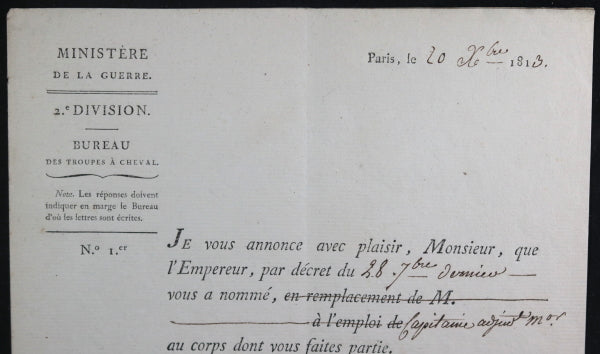 MINISTÈRE
DE LA GUERRE.
2.e DIVISION.
BUREAU
DES TROUPES À CHEVAL.
Note. Les réponses doivent
indiquer en marge le Bureau
d'où les lettres sont écrites.
N.o 1.er
Paris, le 20 Xbre 1813.
JE vous annonce avec plaisir, Monsieur, que
l'Empereur, par décret du 28 7bre dernier
vous a nommé, en remplacement de M.
à l'emploi de Capitaine adjudt Mor
au corps dont vous faites partie.